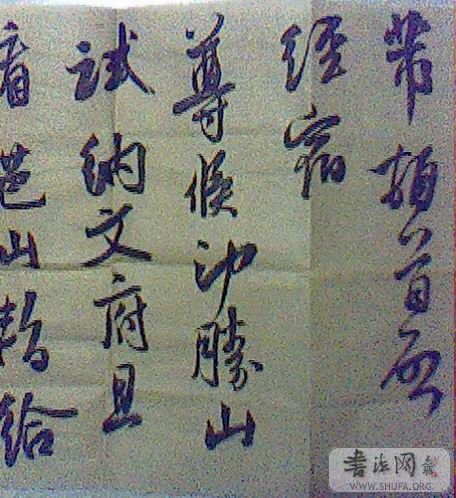 芾頓首啓
經宿
尊候沖勝山
試納文府且
看芭山暫給
書法网
WWW.SHUFA.ORG